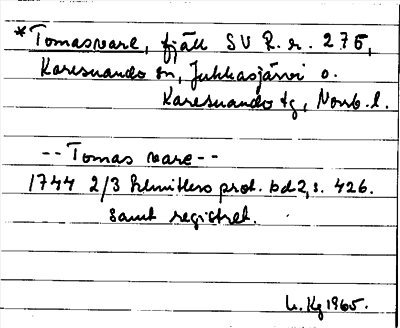 *Tomasvare, fjäll SV R.r. 276,
Karesuando sn, Jukkasjärvi o.
Karesuando tg, Norrb. l.
-- Tomas vare --
1744 2/3 Schnitlers prot. bd 2, s. 426.
samt registret.
Kg 1965.